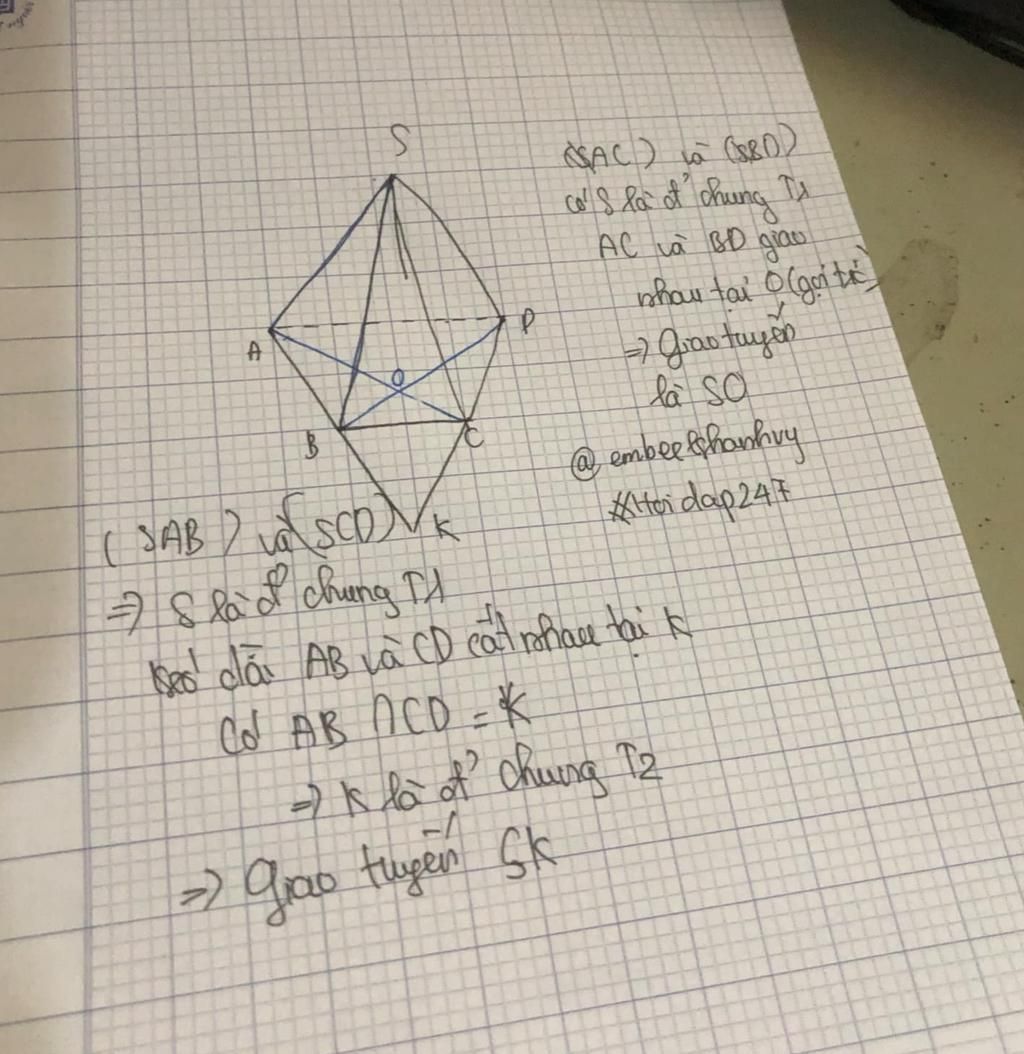 S
A
D
O
B
C
K
(SAC) và (SBD)
có S là đ' chung T1
AC và BD giao
nhau tại O (gọi tắc)
=> Giao tuyến
là SO
@embeekhanhvy
#Hoidap247
(SAB) và (SCD)
=> S là đ' chung T1
kéo dài AB và CD cắt nhau tại K
Có AB ∩ CD = K
=> K là đ' chung T2
=> Giao tuyến SK